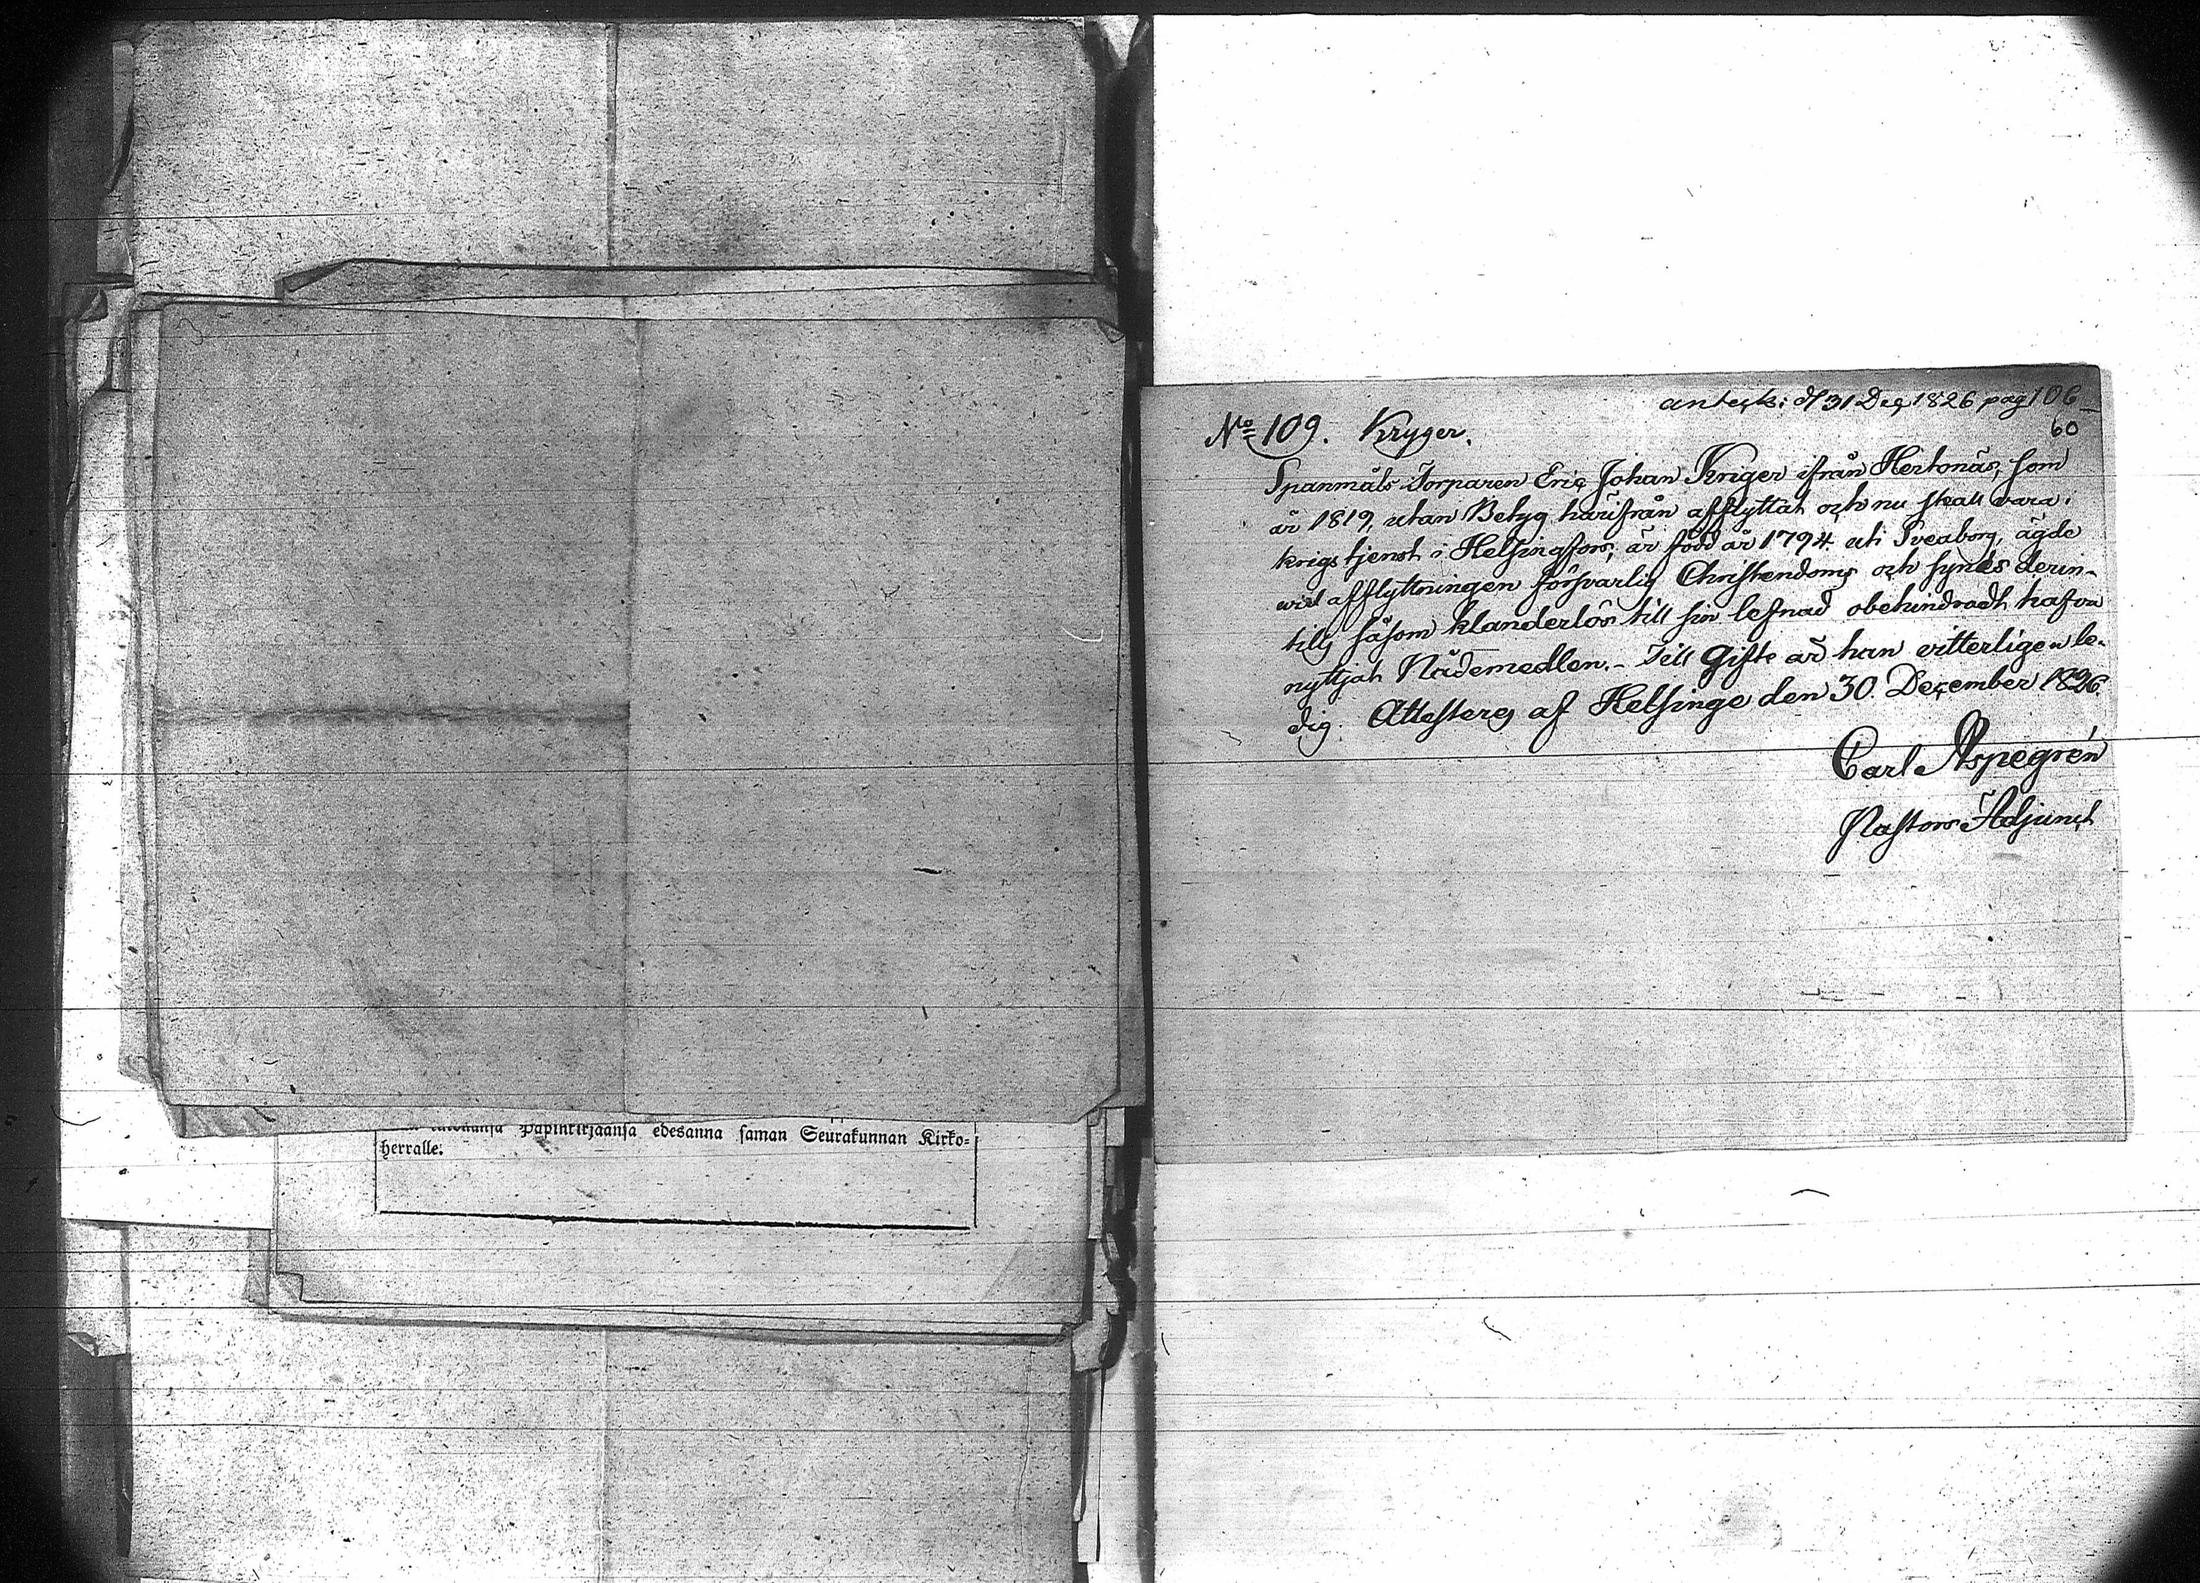 Papinkirjaansa edesanna saman Seurakunnan Kirko-
herralle.
anteck: d 31 Dec 1826 pag 106
60
No 109. Kryger.
Spanmåls Torparen Eric Johan Kriger ifrån Hertonäs, som
år 1819, utan Betyg härifrån afflyttat och nu skall vara i
krigstjenst i Helsingfors, är född år 1794 uti Sveaborg, ägde
wid afflyttningen försvarlig Christendoms och synes derin-
till såsom klanderlös till sin lefnad obehindradt hafva
nyttjat Nådemedlen. - Till Gifte är han vitterligen le-
dig. Attesteras af Helsinge den 30 December 1826.
Carl Aspegrén
Pastors Adjunct